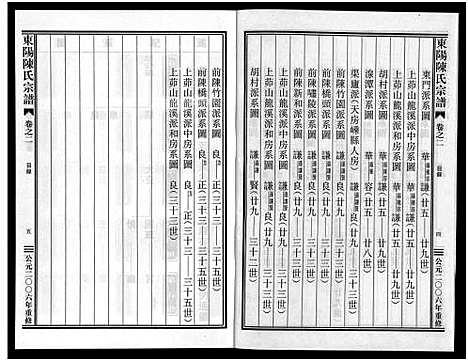 東陽陳氏宗譜
卷之二
目錄
四
公元二〇〇六年重修
東門派系圖 華謙(廿五 廿九世)
上茆山龍溪派中房系圖 華謙(廿五 廿九世)
上茆山龍溪派和房系圖 華謙(廿五 廿九世)
胡村派系圖 華謙(廿五 廿九世)
湶潭派系圖 華容(廿五 廿八世)
果廬派(大房嵊縣人房) 謙良(廿九 三十二世)
前陳新和派系圖 謙良(廿九 三十二世)
前陳嘯陵派系圖 謙良(廿九 三十二世)
前陳橋頭派系圖 謙良(廿九 三十二世)
前陳竹園派系圖 謙良(廿九 三十二世)
上茆山龍溪派中房系圖 謙良(廿九 三十二世)
上茆山龍溪派和房系圖 謙良(廿九 三十二世)
胡村派系圖 謙賢(廿九 三十二世)
前陳橋頭派系圖 良正(三十三 三十五世)
前陳竹園派系圖 良正(三十三 三十五世)
上茆山龍溪派中房系圖 良正(三十三 三十五世)
上茆山龍溪派和房系圖 良(三十三世)
東陽陳氏宗譜
卷之二
目錄
五
公元二〇〇六年重修